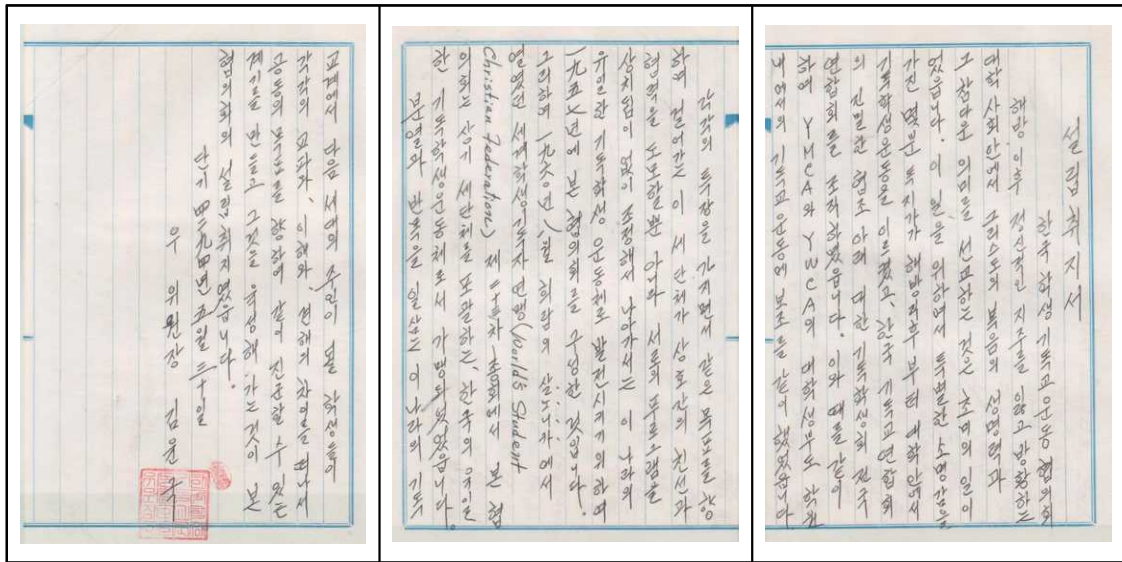 설립취지서
한국 학생 기독교운동 협의회
해방 이후 정신적인 지주를 잃고 방황하는
대학 사회 안에서 그리스도의 복음의 생명력과
그 참다운 의미를 선교하는 것은 초미의 일이
었읍니다. 이 일을 위하여서 특별한 소명감을
가진 몇분 동지가 해방직후 부터 대학안에서
기독학생운동을 이르켰고, 한국 기독교연합회
의 긴밀한 협조 아래 대한 기독학생회 전국
연합회를 조직하였읍니다. 이와 때를 같이
하여 YMCA와 YWCA의 대학생부도 학원
내에서의 기독교운동에 보조를 같이 했었읍니다.
각각의 특장을 가지면서 같은 목표를 향
하여 걸어가는 이 세 단체가 상호간의 친선과
협력을 도모할뿐 아니라 서로의 프로그램을
상치됨이 없이 조정해서 나아가서는 이 나라의
유일한 기독학생 운동체로 발전시키기 위하여
一九五七년에 본 협의회를 구성한 것입니다.
그리하여 一九六0년 八월 희랍의 살로니카에서
열렸던 세계학생기독자 연맹(World's Student
Christian Federation) 제 총회에서 본 협
의회는 상기 세단체를 포괄하는, 한국의 유일
한 기독학생운동체로서 가맹되었읍니다.
분열과 반목을 일삼는 이 나라의 기독
교계에서 다음 세대의 주인이 될 학생들이
각각의 교파나, 이해와 견해의 차이를 떠나서
공동의 목표를 향하여 같이 전진할 수 있는
계기를 만들고 그것을 육성해 가는것이 본
협의회의 설립취지였읍니다.
단기 四二九四년 五월 二十일
우 위원장 김윤국